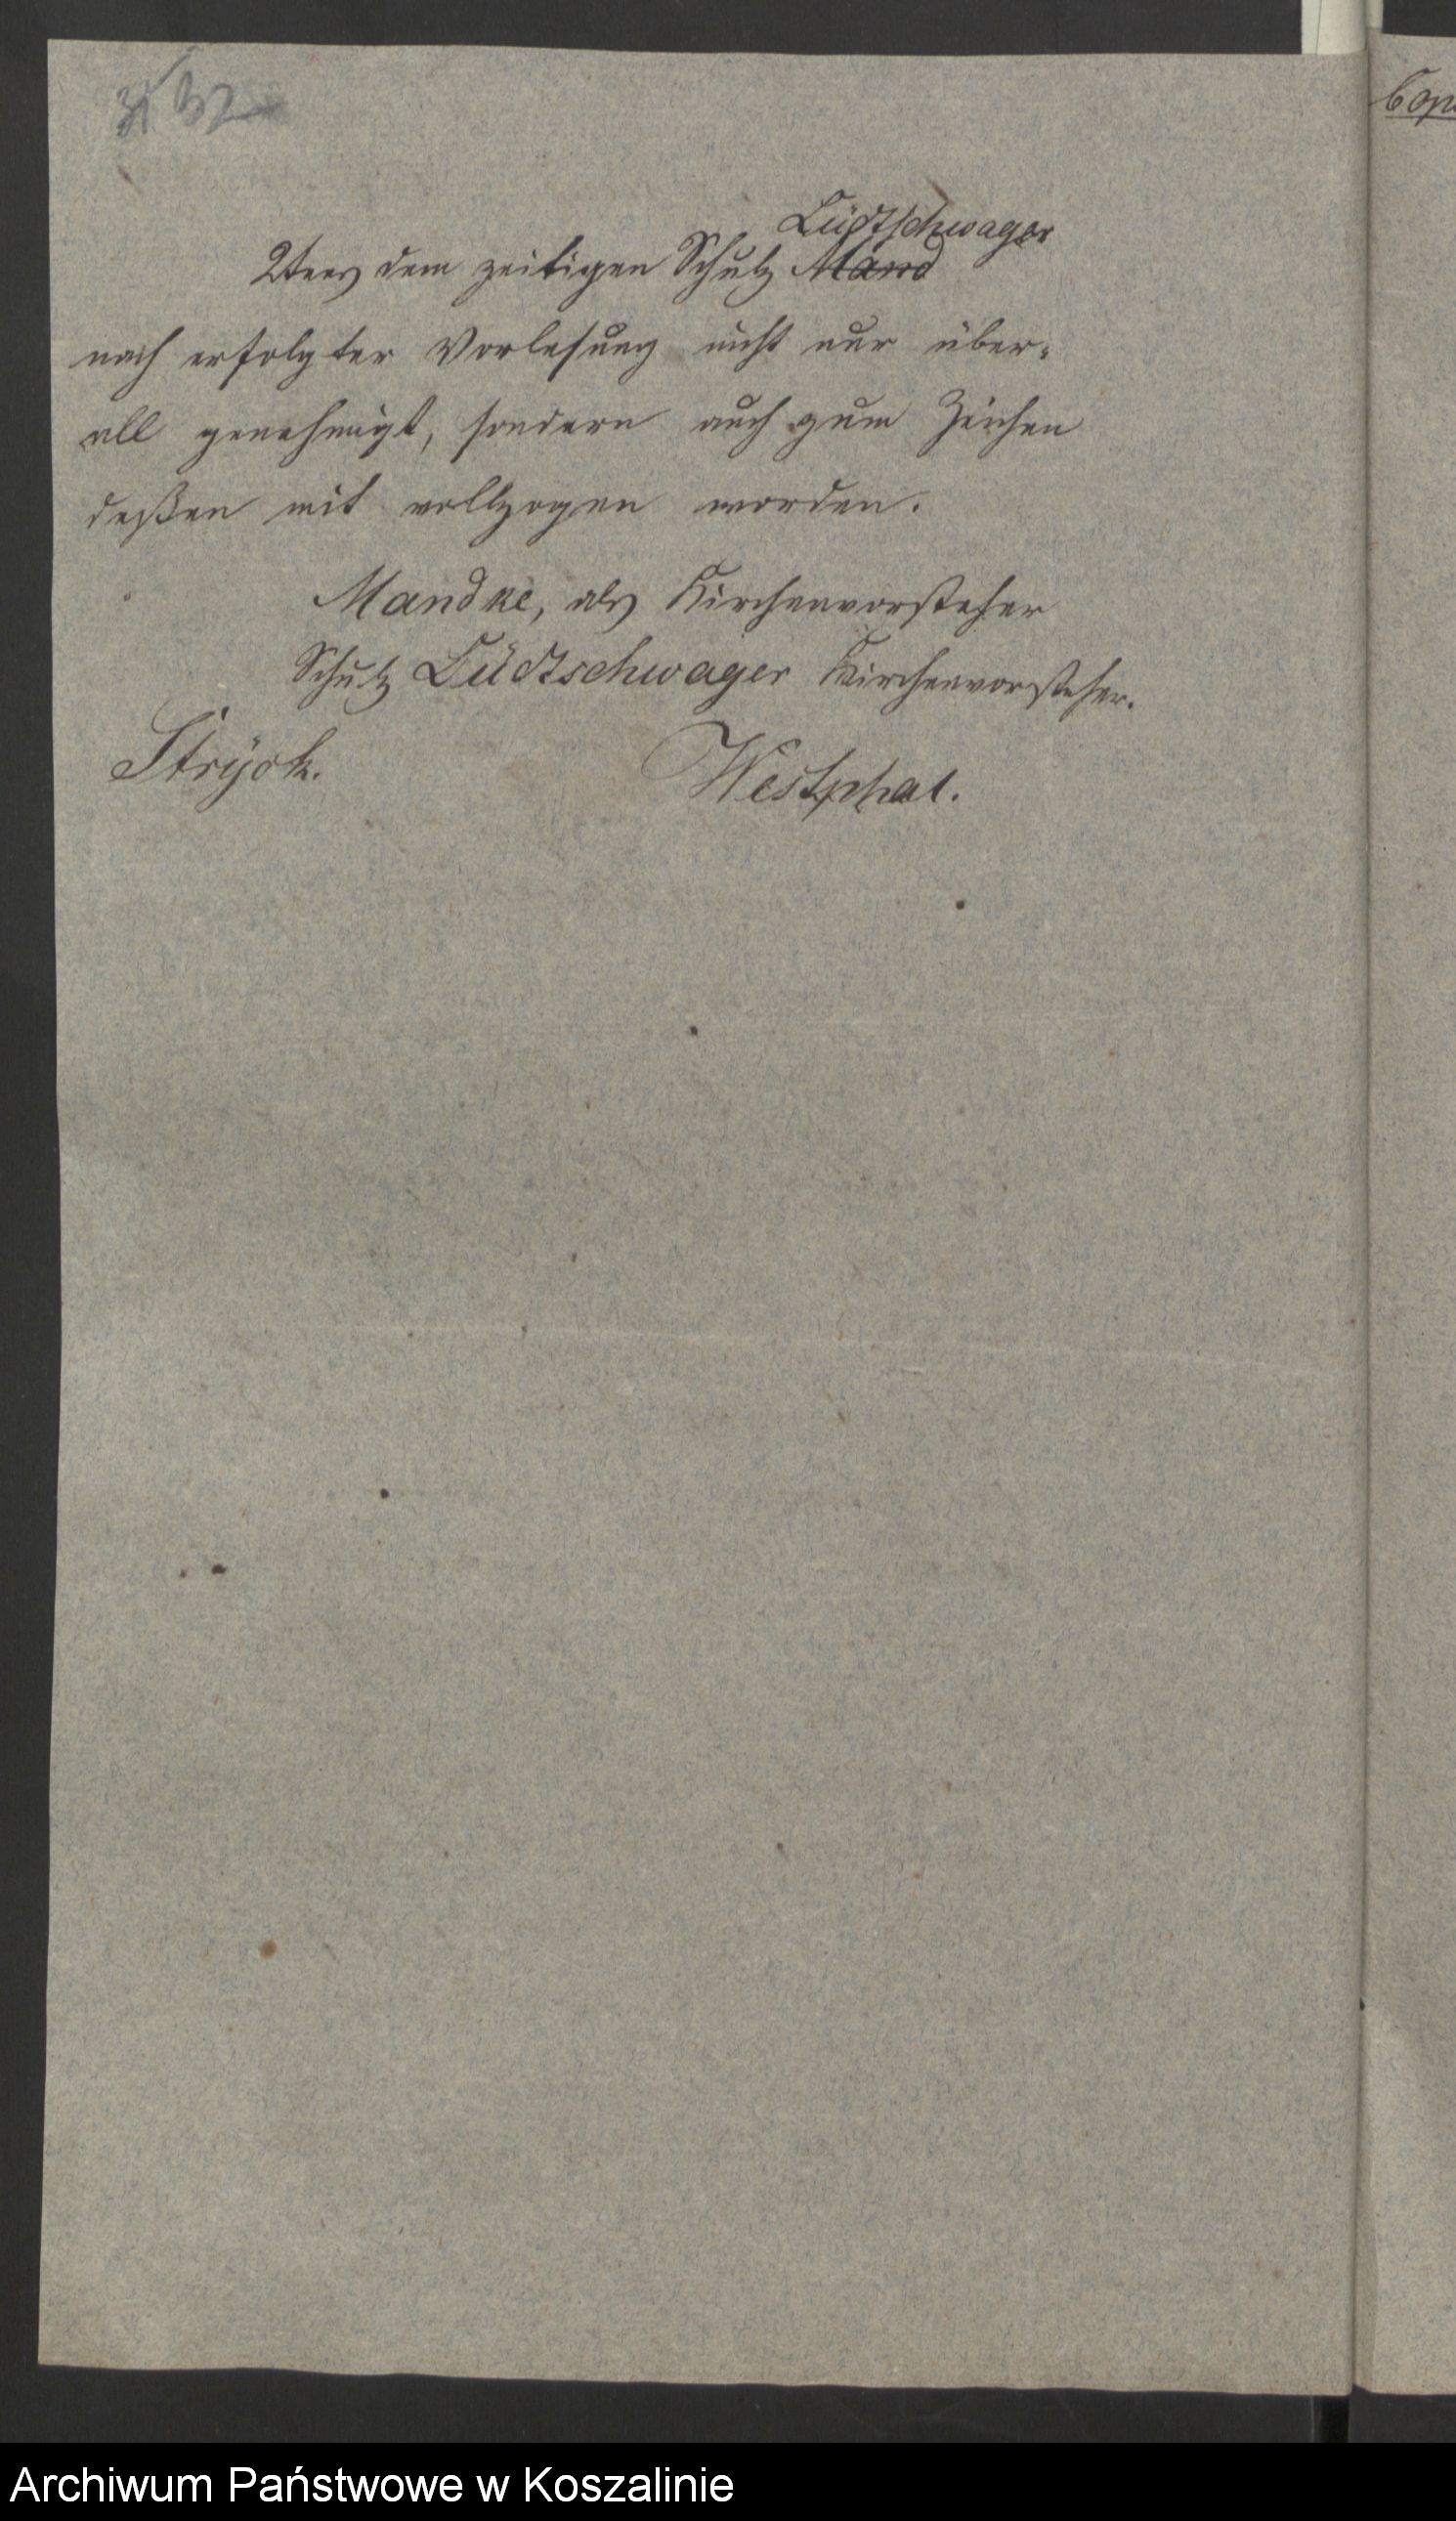 32
Lüdtschwager
2tens dem zeitigen Schulz Mand
nach erfolgter Vorlesung nicht nur über-
all genehmigt, sondern auch zum Zeichen
deßen mit vollzogen worden.
Mandke, als Kirchenvorsteher
Schulz Lüdtschwager Kirchenvorsteher.
Stryck.
Westphal.
Archiwum Państwowe w Koszalinie